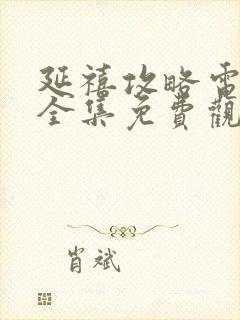 延禧攻略電
全集免費觀
肖斌